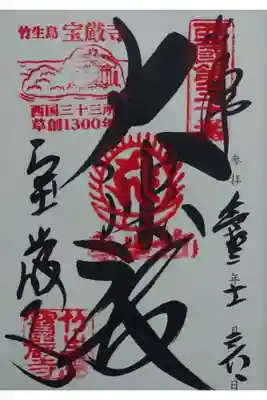 竹生島 宝厳寺
西国三十三所
草創1300年
西國第三十番
奉
参拝
年
月
日
大悲殿
宝厳寺
竹生島
寳厳寺